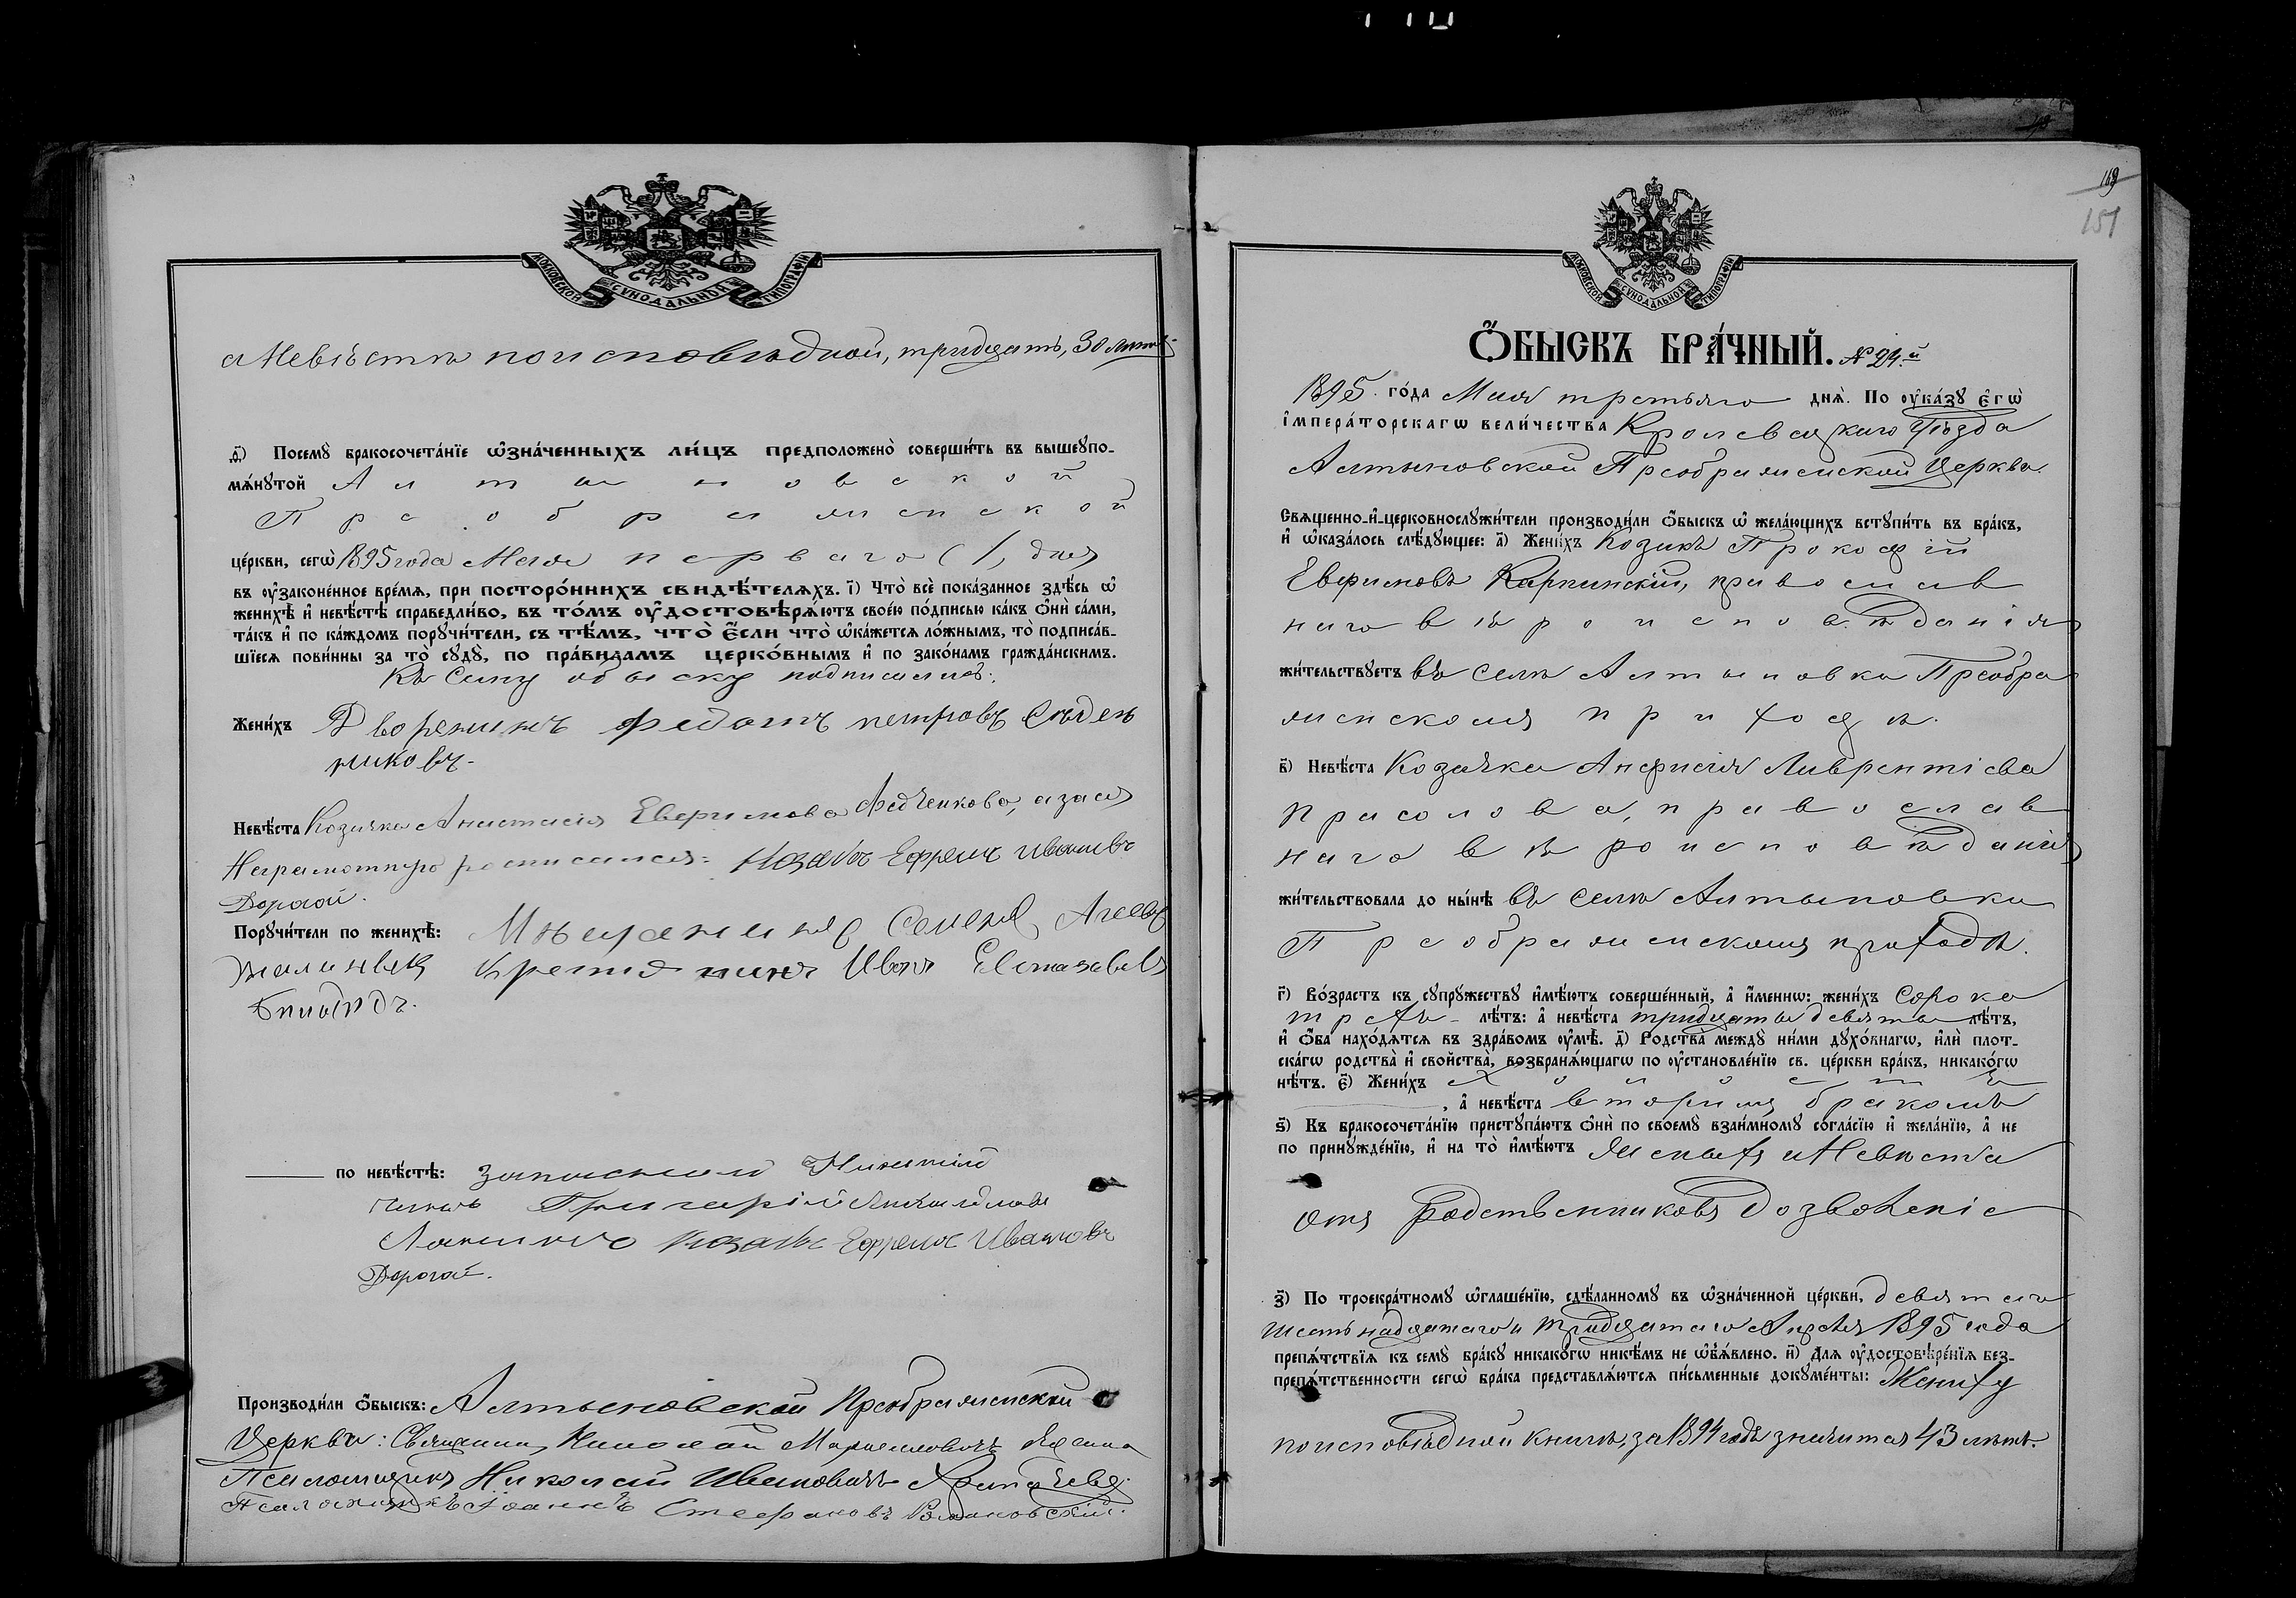 МОСКОВСКОЙ СУНОДАЛЬНОЙ ТИПОГРАФІИ
а Невѣста по исповѣдной, тридцать, 30 лѣтъ
д҃і) Посемꙋ̀ бракосочета́нїе ѡ҆зна́ченныхъ ли́цъ предположено̀ соверши́ть въ вышеꙋпо-
мѧ́нꙋтой Алтыновской
Преображенской
це́ркви, сегѡ̀ 1895 года Мая перваго (1, дня
въ ᲂу҆зако́ненное вре́мѧ, при посторо́ннихъ свидѣ́телѧхъ. і҃) Что̀ всѐ пока́занное здѣ́сь ѡ҆
женихѣ̀ и҆ невѣ́стѣ справедли́во, въ то́мъ ᲂу҆достовѣрѧ́ютъ свое́ю по́дписью ка́къ ѻ҆нѝ са́ми,
та́къ и҆ по ка́ждомъ порꙋчи́тели, съ тѣ́мъ, что̀ є҆́сли что̀ ѡ҆ка́жетсѧ ло́жнымъ, то̀ подписа́в-
шїесѧ пови́нны за то̀ сꙋдꙋ̀, по пра́виламъ церко́внымъ и҆ по зако́намъ гражда́нскимъ.
Къ сему обыску подписались:
Жени́хъ Дворенинъ Федотъ петровъ Следен
никовъ.
Невѣ́ста Козачка Анастасія Ефримова Федченкова, а за ея
Неграмотную росписался: Казакъ Ефремъ Ивановъ
Дорогой.
Порꙋчи́тели по женихѣ̀: Мещененъ Семенъ Агеевъ
Крестянинъ Иванъ
по невѣ́стѣ: Запасный
Григорій
Казакъ Ефремъ Ивановъ
Дорогой.
Производи́ли ѻ҆́быскъ: Алтыновской Преображенской
Церкви: Священникъ Николай
Псаломщикъ Николай Ивановичъ
Псаломщикъ Іоаннъ Стефановъ
169
151
МОСКОВСКОЙ СУНОДАЛЬНОЙ ТИПОГРАФІИ
Ѻ҆́БЫСКЪ БРА́ЧНЫЙ. № 24.й
1895. го́да Мая третьяго днѧ̀. По ᲂу҆ка́зꙋ є҆гѡ̀
і҆мпера́торскагѡ вели́чества Кролевецкаго Уѣзда
Алтыновской Преображенской Церкви.
Свѧщенно-и҆-церковнослꙋжи́тели производи́ли ѻ҆́быскъ ѡ҆ жела́ющихъ встꙋпи́ть въ бра́къ,
и҆ ѡ҆каза́лось слѣ́дꙋющее: а҃) Жени́хъ Козакъ Прокофій
Евфимовъ Карпинскій, православ
наго вѣроисповѣданія
жи́тельствꙋетъ въ селѣ Алтыновки Преобра
женскомъ приходѣ.
в҃) Невѣ́ста Козачка Анфисія Лаврентіева
Прасолова, православ
наго вѣроисповѣданія
жи́тельствовала до ны́нѣ въ селѣ Алтыновки
Преображенскомъ приходѣ.
г҃) Во́зрастъ къ сꙋпрꙋ́жествꙋ и҆мѣ́ютъ соверше́нный, а҆ и҆́меннѡ: жени́хъ сорока
трехъ лѣ́тъ: а҆ невѣ́ста тридцаты девяты лѣ́тъ,
и҆ ѻ҆́ба нахо́дѧтсѧ въ здра́вомъ ᲂу҆мѣ̀. д҃) Родства̀ междꙋ̀ ни́ми дꙋхо́внагѡ, и҆лѝ плот-
ска́гѡ родства̀ и҆ свойства̀, возбранѧ́ющагѡ по ᲂу҆становле́нїю св. це́ркви бра́къ, никако́гѡ
нѣ́тъ. є҃) Жени́хъ холостъ
, а҆ невѣ́ста вторимъ бракомъ
ѕ҃) Къ бракосочета́нїю пристꙋпа́ютъ ѻ҆нѝ по своемꙋ̀ взаи́мномꙋ согла́сїю и҆ жела́нїю, а҆ не
по принꙋжде́нїю, и҆ на то̀ и҆мѣ́ютъ Женихъ и Невѣста
отъ Родственниковъ дозволеніе
з҃) По троекра́тномꙋ ѡ҆глаше́нїю, сдѣ́ланномꙋ въ ѡ҆зна́ченной це́ркви, девятаго
шестьнадцатаго и тридцатаго Апреля 1895 года
препѧ́тствїѧ къ семꙋ̀ бра́кꙋ никако́гѡ никѣ́мъ не ѡ҆б̾ѧ́влено. и҃) Длѧ ᲂу҆достовѣре́нїѧ без-
препѧ́тственности сегѡ̀ бра́ка представлѧ́ютсѧ пи́сьменные докꙋме́нты: Жениху
по исповѣдной книгѣ, за 1894 годъ значится 43 лѣтъ.